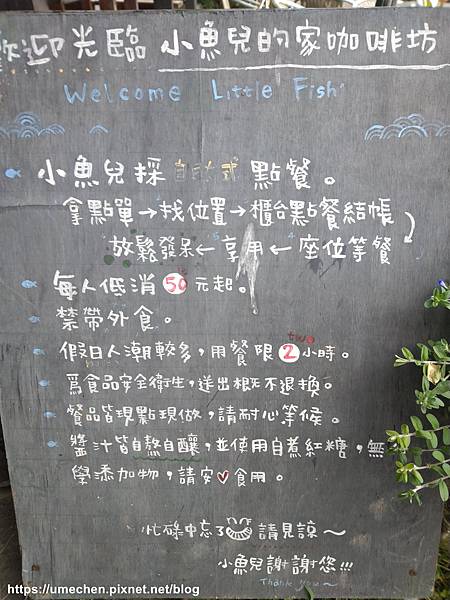 歡迎光臨 小魚兒的家咖啡坊
Welcome Little Fish
小魚兒採自助式點餐。
拿點單→找位置→櫃台點餐結帳
放鬆發呆←享用←座位等餐
每人低消50元起。
禁帶外食。
two
假日人潮較多，用餐限2小時。
為食品安全衛生，送出概不退換。
餐品皆現點現做，請耐心等候。
醬汁皆自熬自釀，並使用自煮紅糖，無
學添加物，請安♥食用。
忙碌中忘了 請見諒～
小魚兒謝謝您!!!
Thank You～
https://umechen.pixnet.net/blog